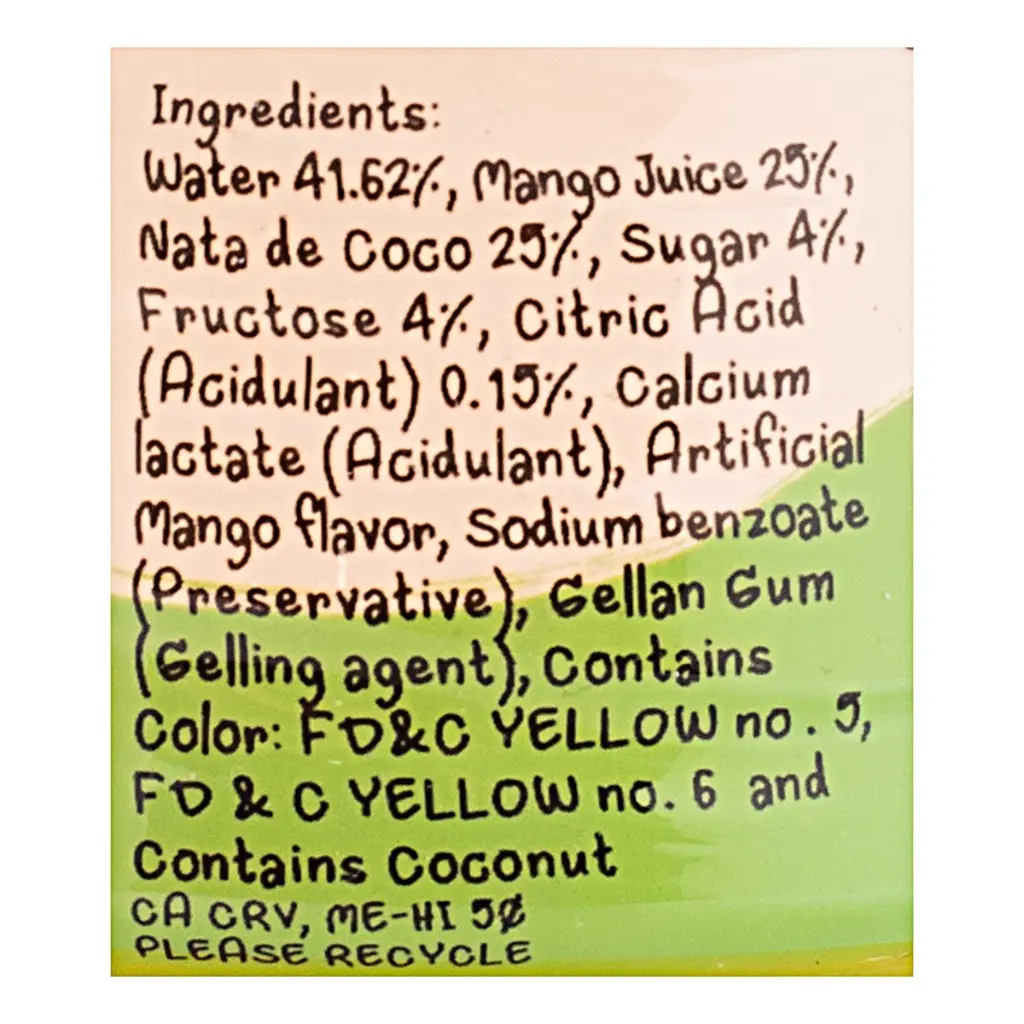 Ingredients:
Water 41.62%, Mango Juice 25%,
Nata de Coco 25%, Sugar 4%,
Fructose 4%, Citric Acid
(Acidulant) 0.15%, Calcium
lactate (Acidulant), Artificial
Mango flavor, Sodium benzoate
(Preservative), Gellan Gum
(Gelling agent), Contains
Color: FD&C YELLOW no. 5,
FD & C YELLOW no. 6 and
Contains Coconut
CA CRV, ME-HI 5¢
PLEASE RECYCLE